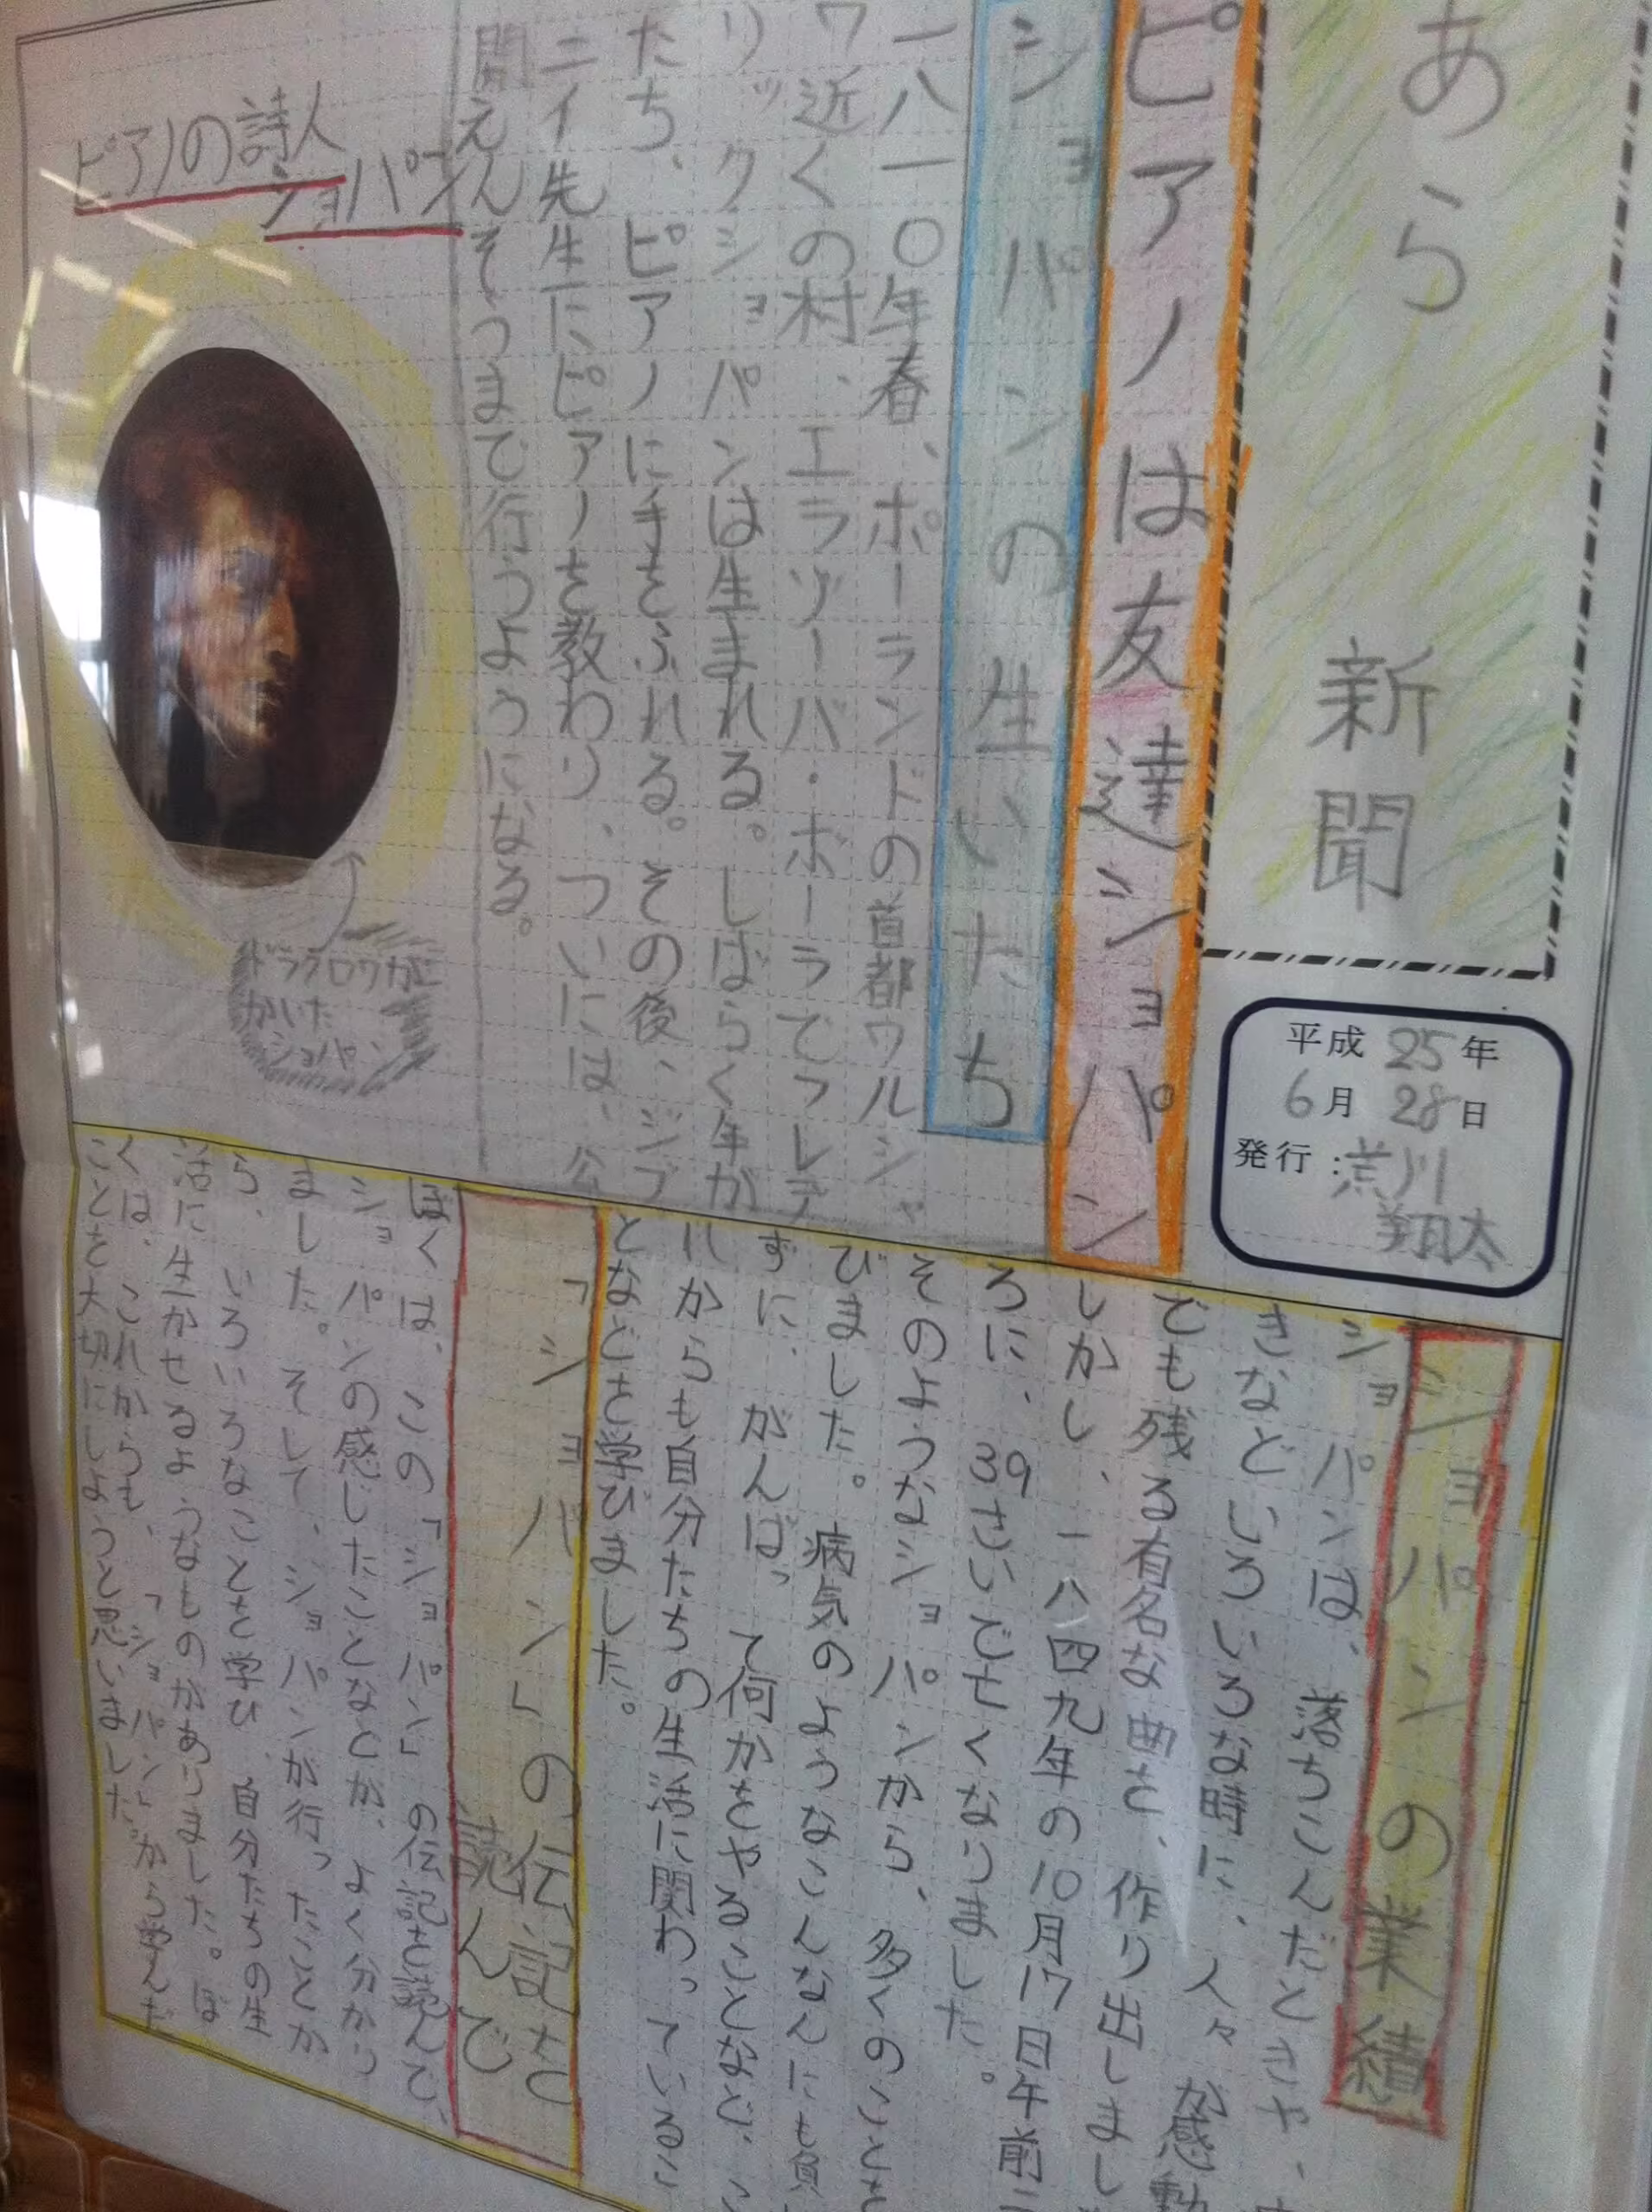 あら 新聞
平成25年
6月28日
発行:荒川
翔太
ピアノは友達ショパン
ショパンの生いたち
一八一〇年春、ポーランドの首都ワルシャ
ワ近くの村、エラゾーバ・ボーラでフレデ
リックショパンは生まれる。しばらく年が
たち、ピアノに手をふれる。その後、ジブ
ニイ先生にピアノを教わり、ついには、公
開えんそうまで行うようになる。
ピアノの詩人
ショパン
ドラクロワが
かいた
ショパン
ショパンの業績
ショパンは、落ちこんだときや、
きなどいろいろな時に、人々が感動
でも残る有名な曲を、作り出しまし
しかし、一八四九年の10月17日午前二
ろに、39さいで亡くなりました。
そのようなショパンから、多くのことを
びました。病気のようなこんなんにも負
ずに、がんばって何かをやることなど、こ
れからも自分たちの生活に関わっているこ
となどを学びました。
「ショパン」の伝記を
読んで
ぼくは、この「ショパン」の伝記を読んで、
ショパンの感じたことなどが、よく分かり
ました。そして、ショパンが行ったことか
ら、いろいろなことを学び、自分たちの生
活に生かせるようなものがありました。ぼ
くは、これからも、「ショパン」から学んだ
ことを大切にしようと思いました。